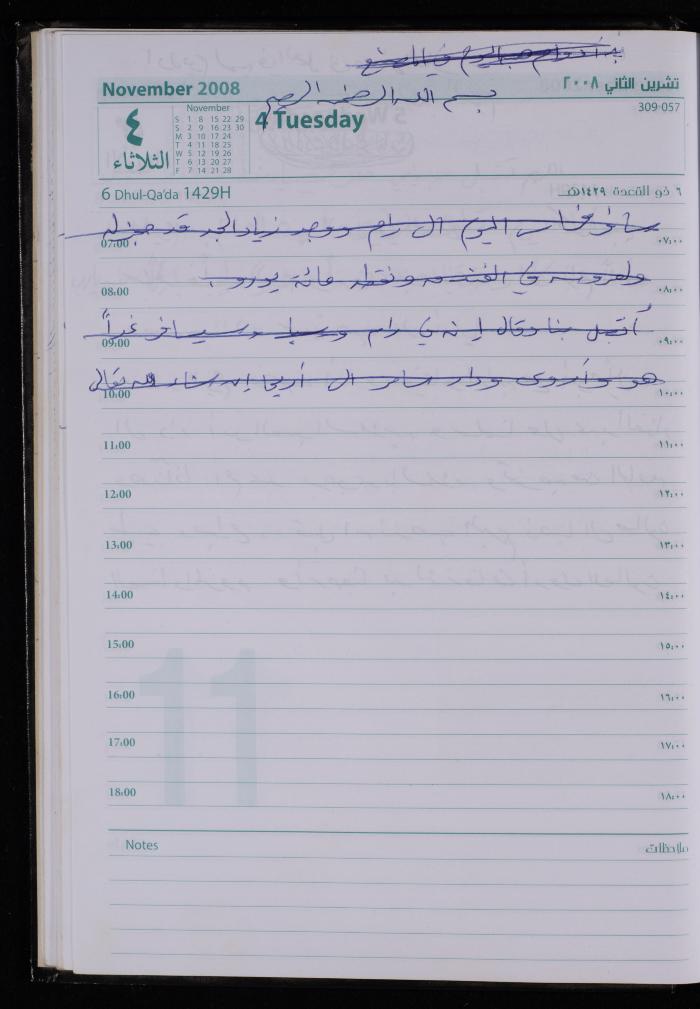 November 2008
تشرين الثاني ٢٠٠٨
بسم الله الرحمن الرحيم
309-057
٤
الثلاثاء
November
S 1 8 15 22 29
S 2 9 16 23 30
M 3 10 17 24
T 4 11 18 25
W 5 12 19 26
T 6 13 20 27
F 7 14 21 28
4 Tuesday
6 Dhul-Qa'da 1429H
٦ ذو القعدة ١٤٢٩هـ
سافر اليوم الى رام ووجد زياد الجد قد حجز له
07:00 ٠٧:٠٠
ولعروبه في الفندق ونقطه مائة يورو.
08:00 ٠٨:٠٠
أتصل بنا وقال إنه في رام وسيسافر غداً
09:00 ٠٩:٠٠
هو وأروى ودار الى أريحا إن شاء الله تعالى
10:00 ١٠:٠٠
11:00 ١١:٠٠
12:00 ١٢:٠٠
13:00 ١٣:٠٠
14:00 ١٤:٠٠
15:00 ١٥:٠٠
11
16:00 ١٦:٠٠
17:00 ١٧:٠٠
18:00 ١٨:٠٠
Notes ملاحظات